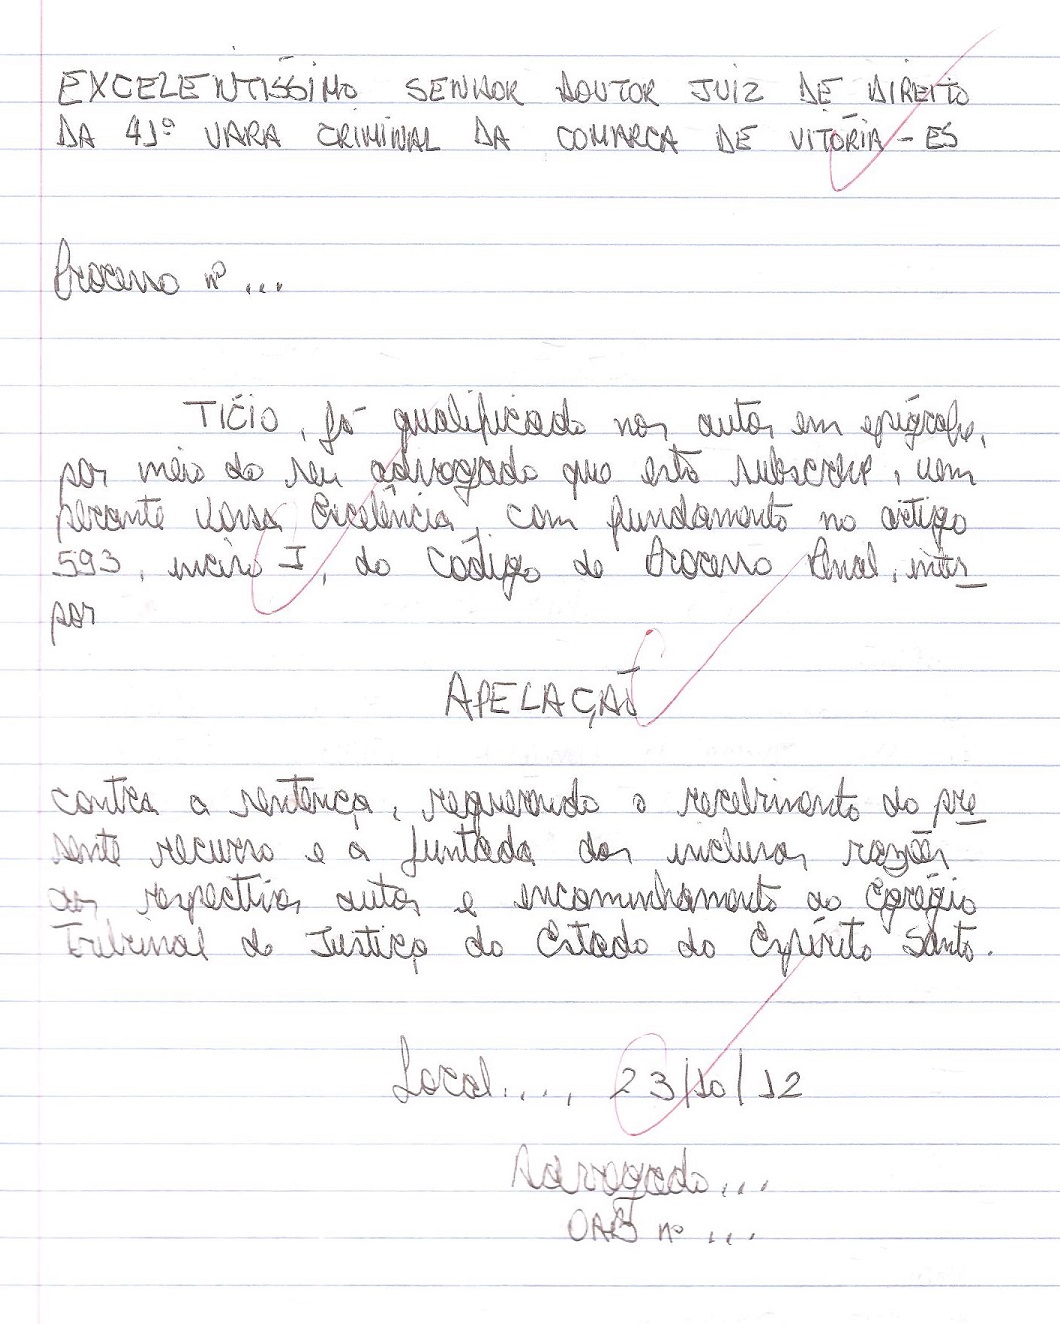 EXCELENTÍSSIMO SENHOR DOUTOR JUIZ DE DIREITO
DA 41º VARA CRIMINAL DA COMARCA DE VITÓRIA - ES
Processo nº ...
TÍCIO, já qualificado nos autos em epígrafe,
por meio do seu advogado que esta subscreve, vem
perante Vossa Excelência, com fundamento no artigo
593, inciso I, do Código de Processo Penal, inter
por
APELAÇÃO
contra a sentença, requerendo o recebimento do pre
sente recurso e a juntada das inclusas razões
aos respectivos autos e encaminhamento ao Egrégio
Tribunal de Justiça do Estado do Espírito Santo.
Local..., 23/10/12
Advogado...
OAB nº ...